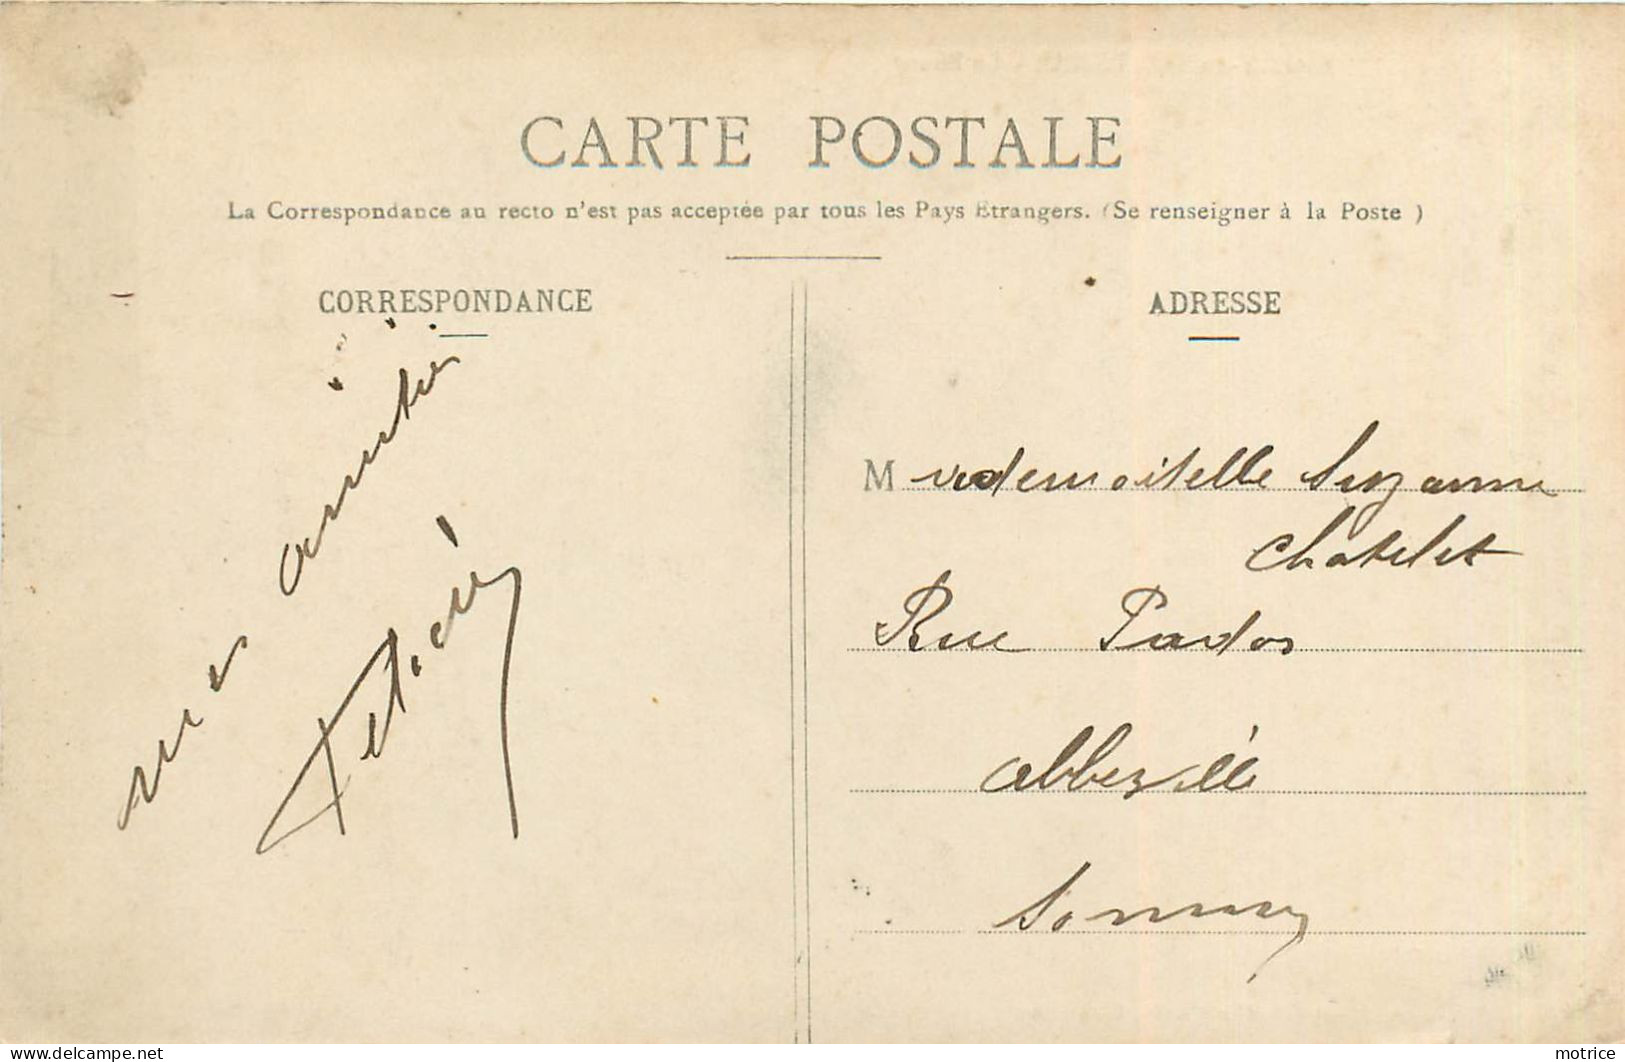 CARTE POSTALE
La Correspondance au recto n'est pas acceptée par tous les Pays Étrangers. (Se renseigner à la Poste )
CORRESPONDANCE
mes amitiés
ADRESSE
Mademoiselle Suzanne
Chatelet
Rue Pados
abbeville
Somme
motrice
delcampe.net